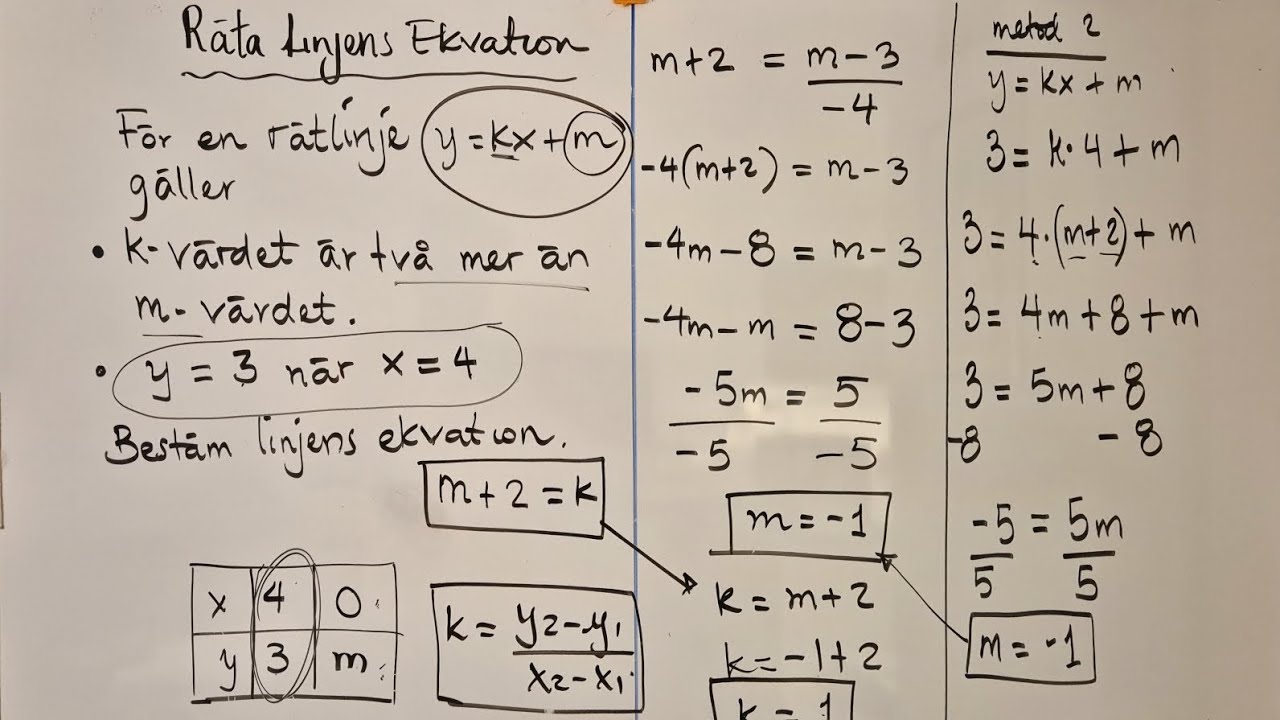 Räta Linjens Ekvation
För en rätlinje y = kx + m
gäller
• k-värdet är två mer än
m-värdet.
• y = 3 när x = 4
Bestäm linjens ekvation.
m + 2 = k
x 4 0
y 3 m
k = y₂ - y₁ / x₂ - x₁
m + 2 = m - 3 / -4
-4(m+2) = m - 3
-4m - 8 = m - 3
-4m - m = 8 - 3
-5m / -5 = 5 / -5
m = -1
k = m + 2
k = -1 + 2
k = 1
metod 2
y = kx + m
3 = k · 4 + m
3 = 4 · (m+2) + m
3 = 4m + 8 + m
3 = 5m + 8
-8 - 8
-5 / 5 = 5m / 5
m = -1